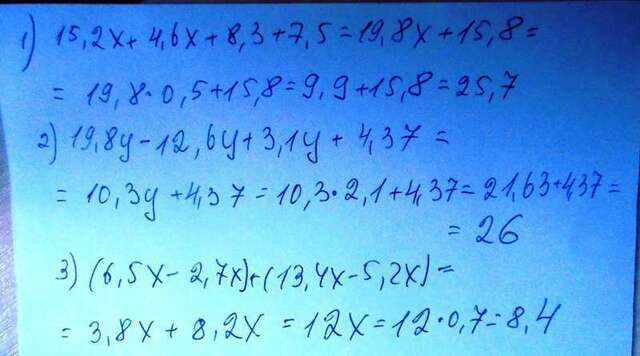 1) 15,2x + 4,6x + 8,3 + 7,5 = 19,8x + 15,8 =
= 19,8 · 0,5 + 15,8 = 9,9 + 15,8 = 25,7
2) 19,8y - 12,6y + 3,1y + 4,37 =
= 10,3y + 4,37 = 10,3 · 2,1 + 4,37 = 21,63 + 4,37 =
= 26
3) (6,5x - 2,7x) + (13,4x - 5,2x) =
= 3,8x + 8,2x = 12x = 12 · 0,7 = 8,4